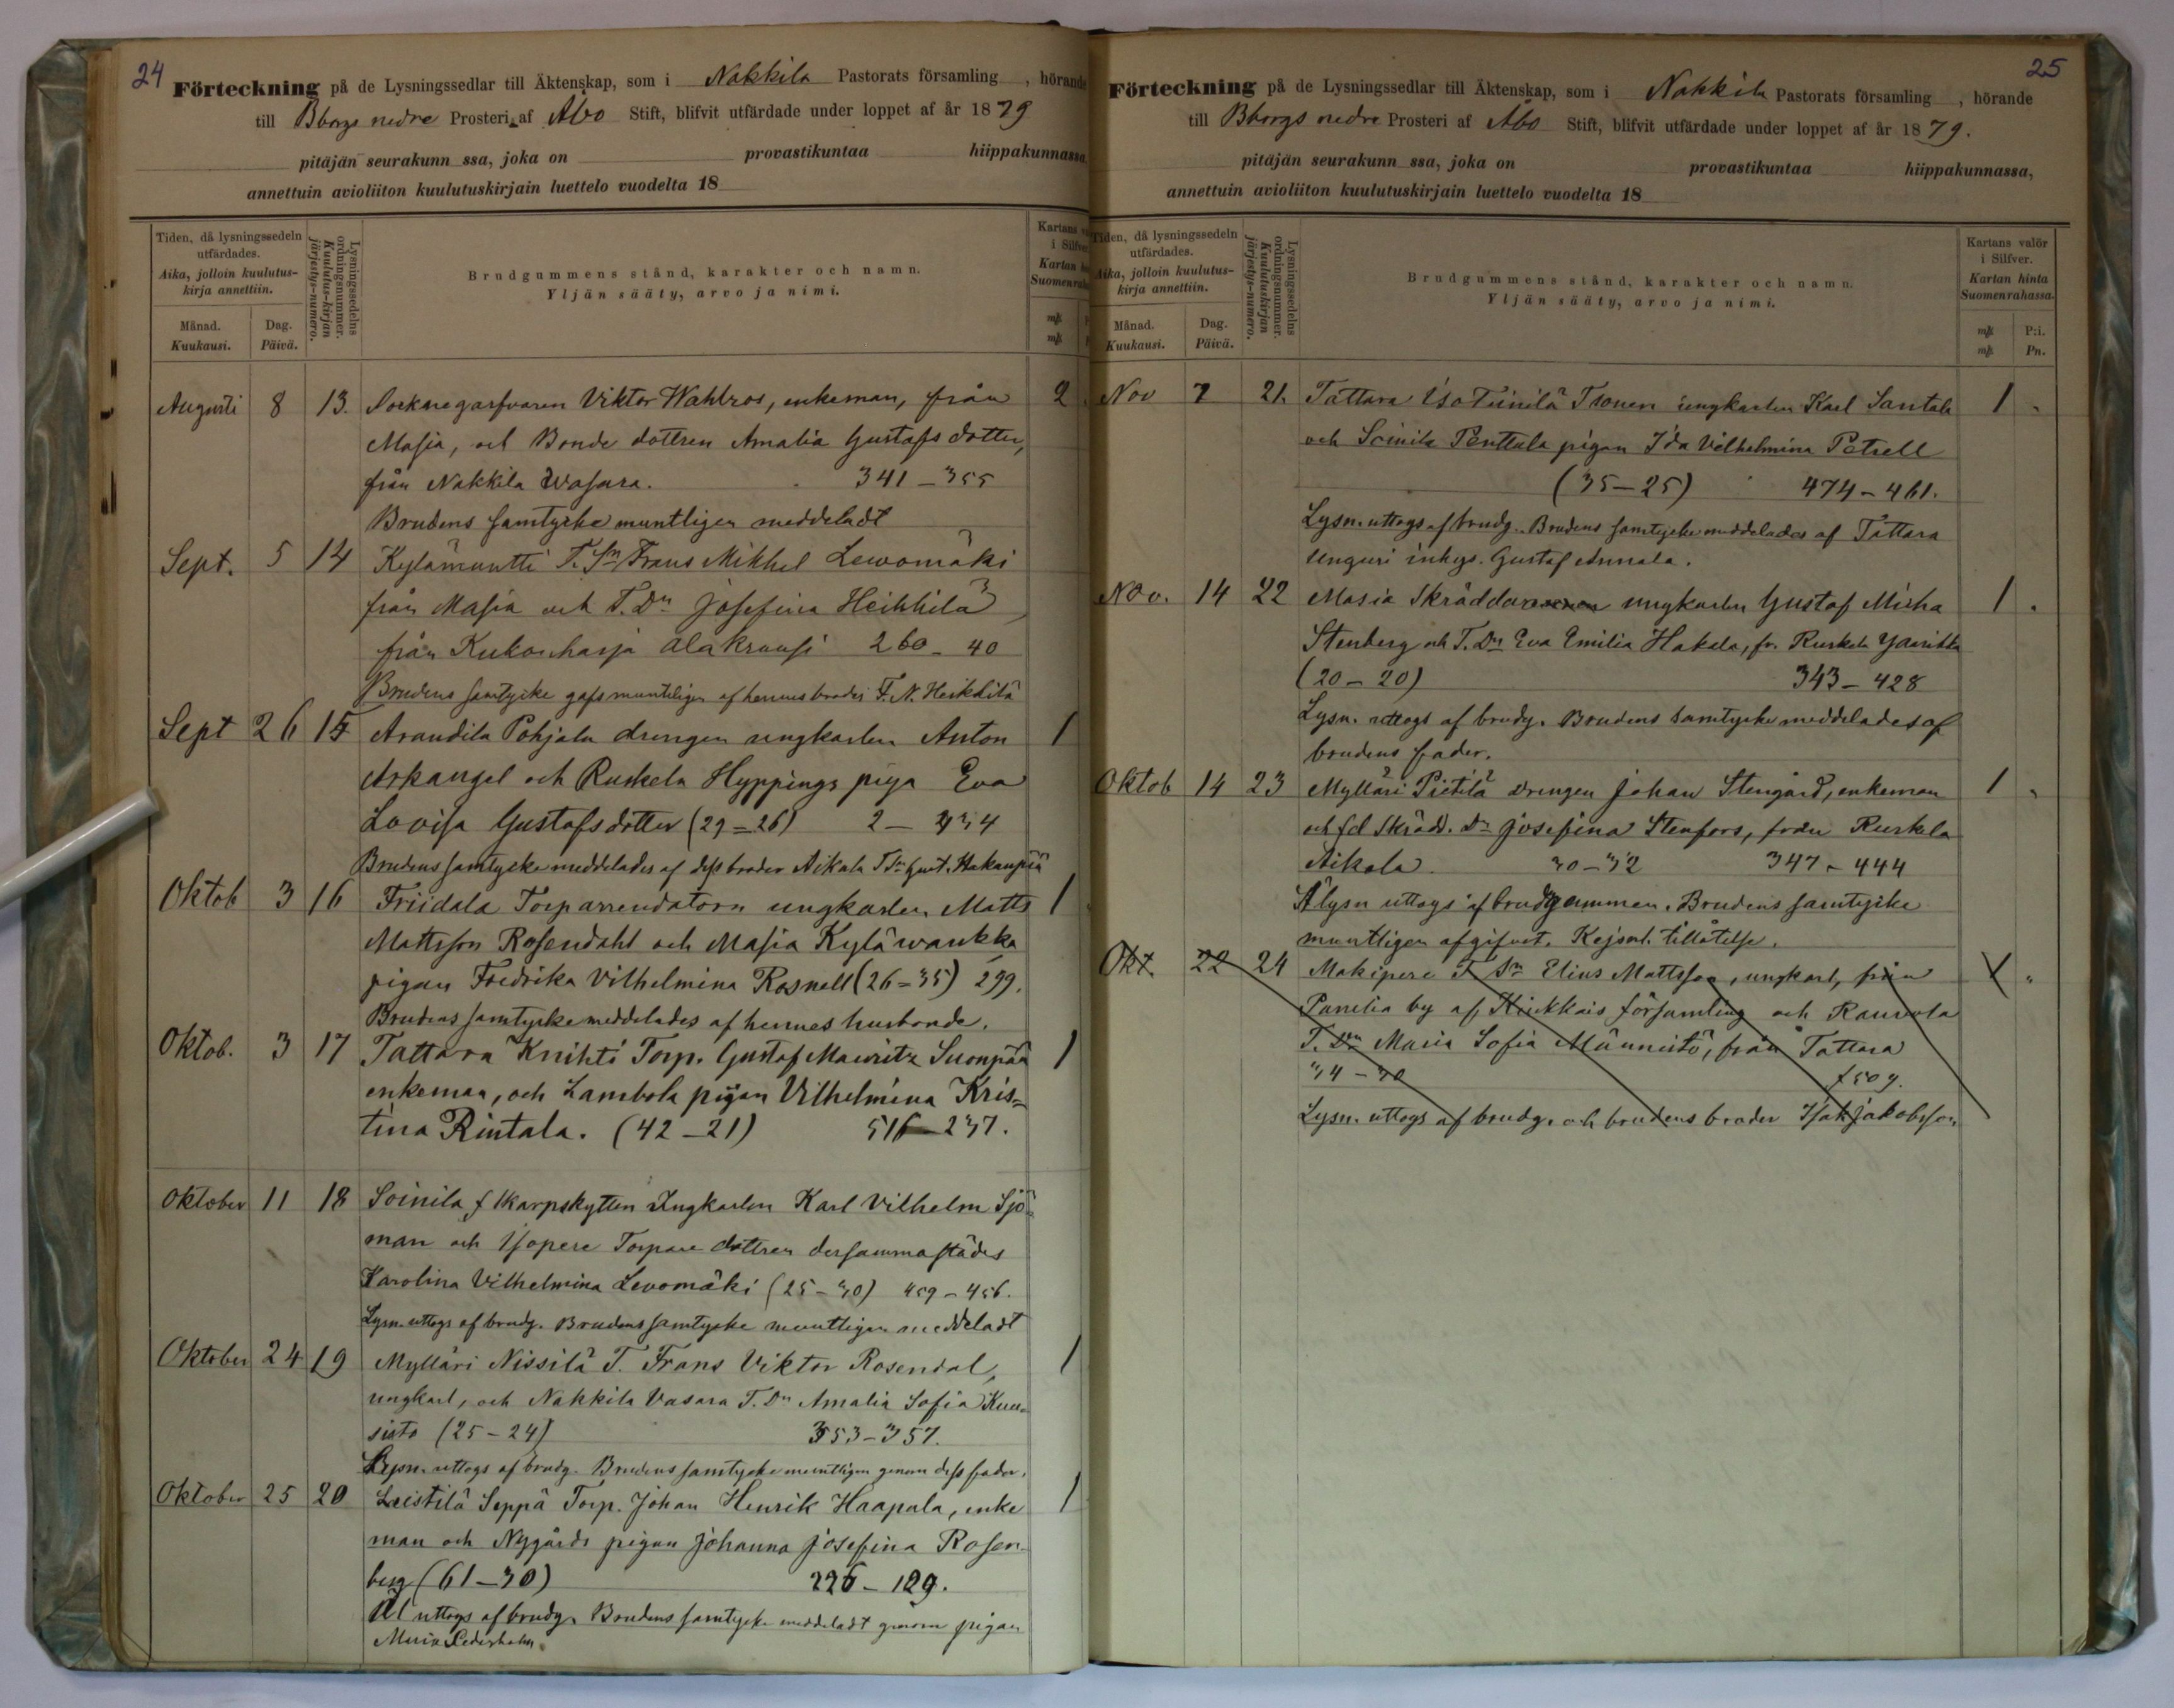 24
Förteckning på de Lysningssedlar till Äktenskap, som i Nakkila Pastorats församling , hörande
till Bborgs nedre Prosteri af Åbo Stift, blifvit utfärdade under loppet af år 1879
pitäjän seurakunn ssa, joka on provastikuntaa hiippakunnassa,
annettuin avioliiton kuulutuskirjain luettelo vuodelta 18
Tiden, då lysningssedeln utfärdades.
Aika, jolloin kuulutus-kirja annettiin.
Månad. Kuukausi.
Dag. Päivä.
Lysningssedelns ordningsnummer.
Kuulutus-kirjan järjestys-numero.
Brudgummens stånd, karakter och namn.
Yljän sääty, arvo ja nimi.
Kartans
i Silfver
Kartan
Suomenraha
mk
mk
Augusti 8 13. Socknegarfvaren Viktor Wahlroos, enkeman, från 2
Masia, och Bonde dottren Amalia Gustafs dotter,
från Nakkila Wasara. 341–355
Brudens samtycke muntligen meddeladt
Sept. 5 14 Kylämuntti T. Sn Frans Mikkel Lewomäki
från Masia och T. Dr Josefina Heikkilä
från Kukonharja Alakruusi 260–40
Brudens samtycke gafs muntligen af hennes broder F. N. Heikkilä
Sept 26 15 Arandila Pohjala drengen ungkarlen Anton 1
Arkangel och Ruskela Hyppings piga Eva
Lovisa Gustafsdotter (29=26) 2– 434
Brudens samtycke meddelades af dess broder Aikala T Sn Gust. Hakanpää
Oktob 3 16 Friidala Torparrendatorn ungkarlen Matts 1
Mattsson Rosendahl och Masia Kyläwankka
pigan Fredrika Vilhelmina Rosnell (26=35) 299.
Brudens samtycke meddelades af hennes husbonde.
Oktob. 3 17 Tattara Knihti Torp. Gustaf Mauritz Suonpää 1
enkeman, och Lambola pigan Vilhelmina Kris=
tina Rintala. (42–21) 516–237.
Oktober 11 18 Soinila f skarpskytten Ungkarlen Karl Vilhelm Sjö=
man och Isopere Torpare dottren dersammastädes
Karolina Vilhelmina Levomäki (25–30) 459–456.
Lysn. uttogs af brudg. Brudens samtycke muntligen meddeladt
Oktober 24 19 Mylläri Nissilä T. Frans Viktor Rosendal, 1
ungkarl, och Nakkila Vasara T. Dr Amalia Sofia Kuu=
sisto (25–24) 353–357.
Lysn. uttogs af brudg. Brudens samtycke muntligen genom dess fader.
Oktober 25 20 Leistilä Seppä Torp. Johan Henrik Haapala, enke 1
man och Nygårds pigan Johanna Josefina Rosen-
berg (61–30) 226–189.
uttogs af brudg. Brudens samtycke meddeladt genom pigan
Maria Cederholm.
25
Förteckning på de Lysningssedlar till Äktenskap, som i Nakkila Pastorats församling , hörande
till Bborgs nedre Prosteri af Åbo Stift, blifvit utfärdade under loppet af år 1879.
pitäjän seurakunn ssa, joka on provastikuntaa hiippakunnassa,
annettuin avioliiton kuulutuskirjain luettelo vuodelta 18
Tiden, då lysningssedeln utfärdades.
Aika, jolloin kuulutus-kirja annettiin.
Månad. Kuukausi.
Dag. Päivä.
Lysningssedelns ordningsnummer.
Kuulutuskirjan järjestys-numero.
Brudgummens stånd, karakter och namn.
Yljän sääty, arvo ja nimi.
Kartans valör i Silfver.
Kartan hinta Suomenrahassa.
mk P:i.
mk Pn.
Nov 7 21. Tattara Iso Tiinilä Tsonen ungkarlen Karl Santala 1 "
och Soinila Penttala pigan Ida Vilhelmina Petrell
(35–25) 474–461.
Lysn. uttogs af brudg. Brudens samtycke meddelades af Tattara
Unguri inhys. Gustaf Annala.
Nov. 14 22 Masia Skräddaren ungkarlen Gustaf Micha 1 "
Stenberg och T. Dr Eva Emilia Hakala, fr. Ruskela Yavitta
(20–20) 343–428
Lysn. uttogs af brudg. Brudens samtycke meddelades af
brudens fader.
Oktob 14 23 Mylläri Pietilä drengen Johan Stengård, enkeman 1 "
och fd Skrädd. Dr Josefina Stenfors, från Ruskela
Aikala. 30–32 347–444
Lysn uttogs af brudgummen. Brudens samtycke
muntligen afgifvet. Kejserl. tillåtelse.
Okt. 22 24 Makipere T Sn Elius Mattsson, ungkarl, från 1 "
Panelia by af Kiukkais församling och Rauvola
T. Dr Maria Sofia Männistö, från Tattara
34–30 f 509.
Lysn. uttogs af brudg. och brudens broder Isak Jakobsson